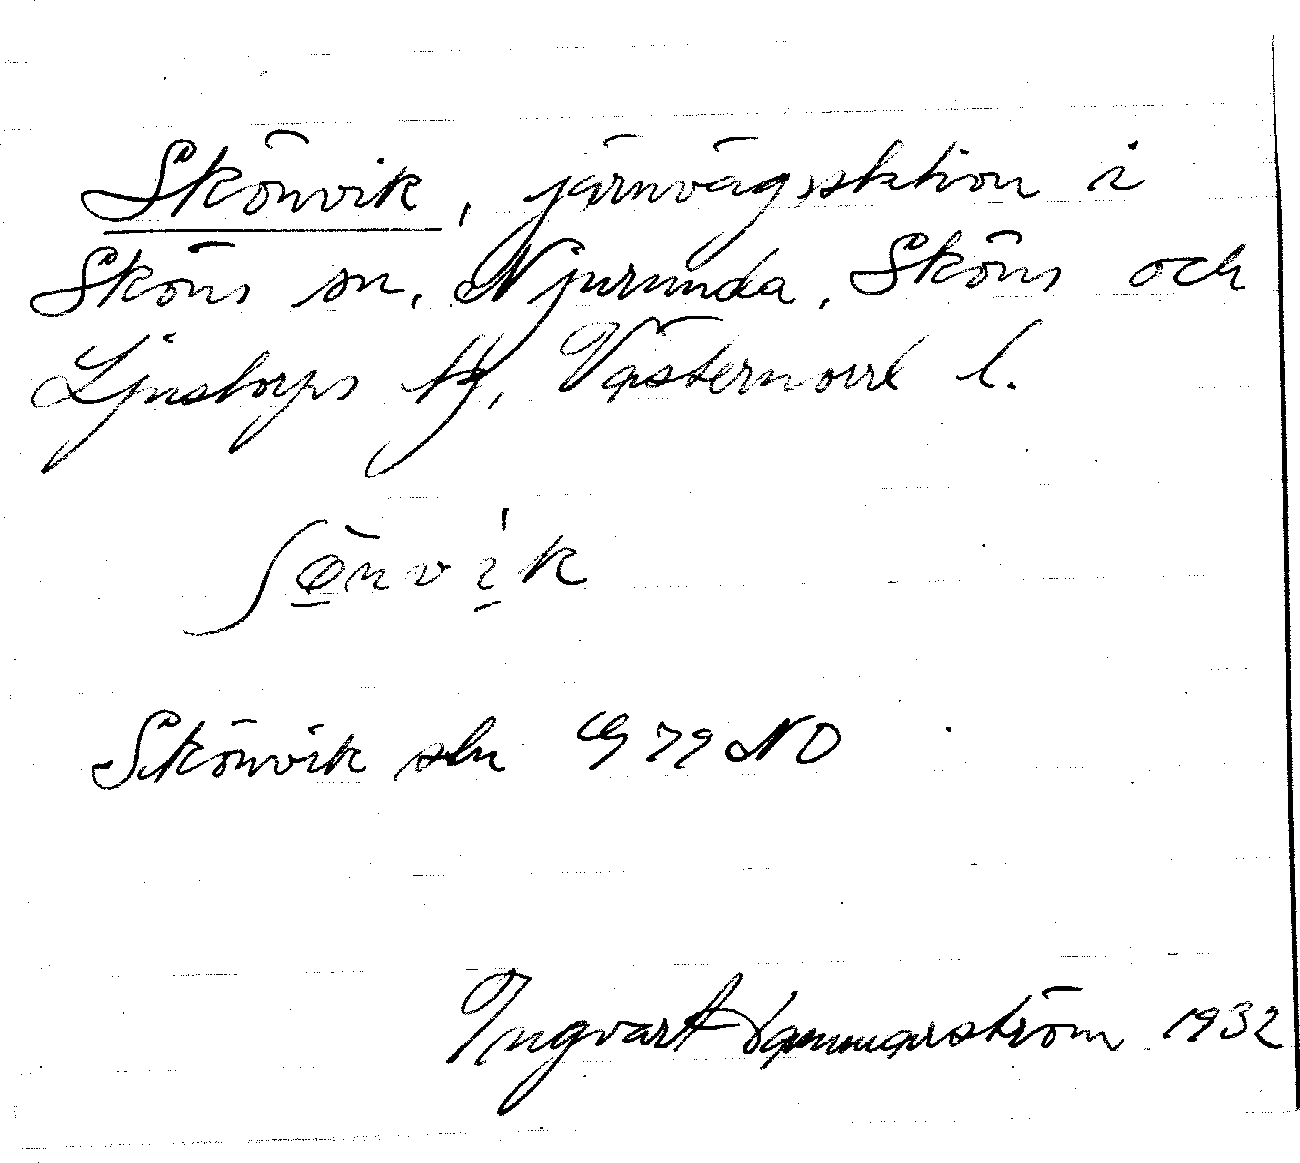 Skönvik, järnvägsstation i
Sköns sn, Njurunda, Sköns och
Ljustorps tg, Västernorrl l.
ʃɵ̠nvi̠k
Skönvik stn G 79 NO
Ingvart Hammarström 1932